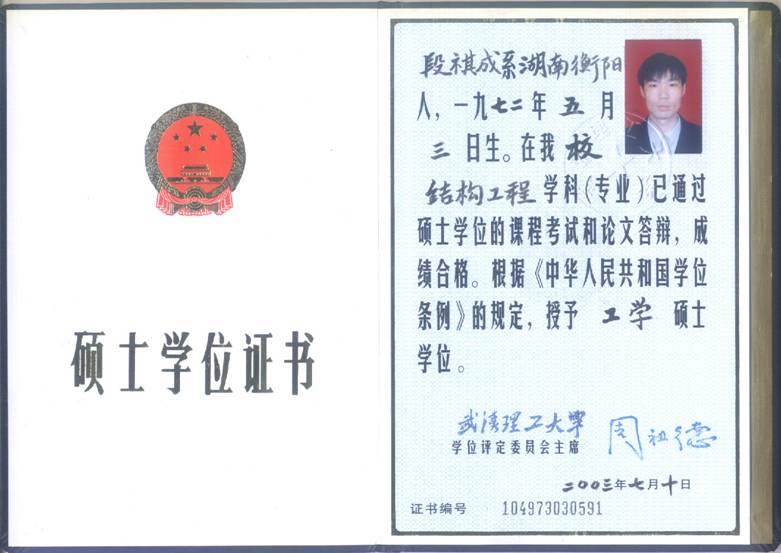 硕士学位证书
段祺成系湖南衡阳
人，一九七二年五月
三日生。在我校
结构工程学科（专业）已通过
硕士学位的课程考试和论文答辩，成
绩合格。根据《中华人民共和国学位
条例》的规定，授予工学硕士
学位。
武汉理工大学
学位评定委员会主席
周祖德
二00三年七月十日
证书编号 104973030591